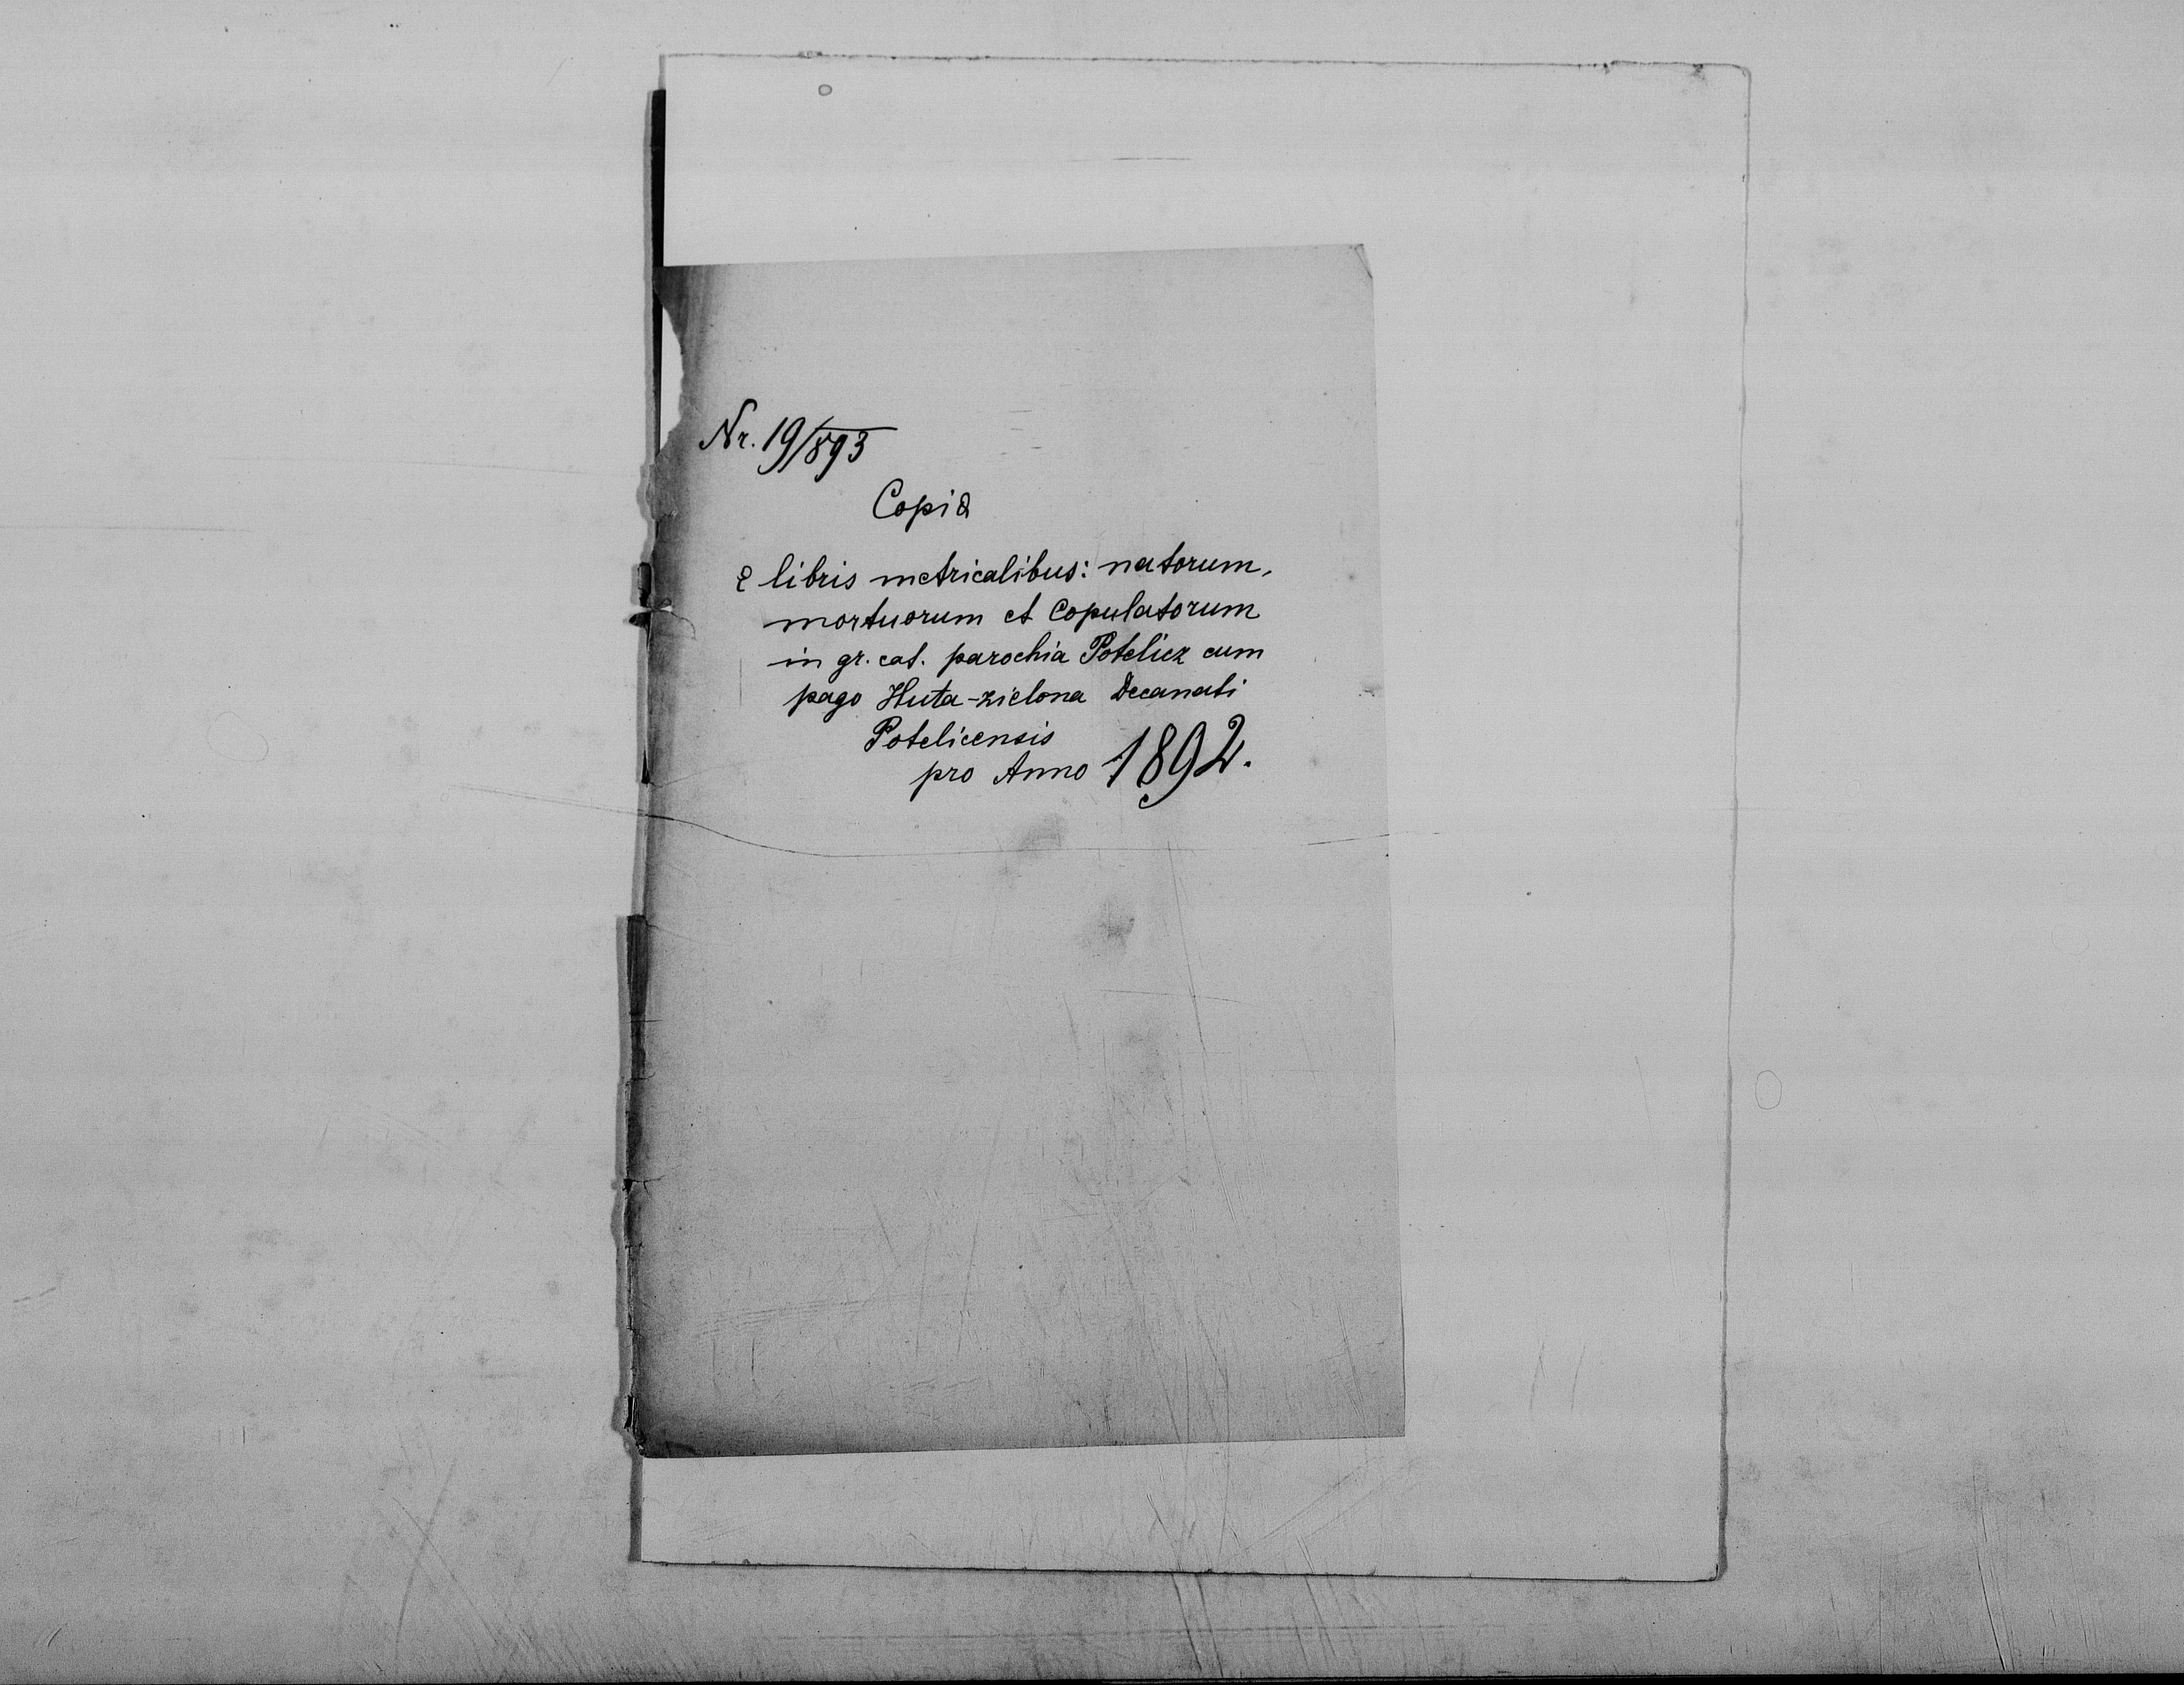 Nr. 19/893
Copia
e libris metricalibus: natorum,
mortuorum et Copulatorum
in gr. cat. parochia Potelicz cum
pago Huta-zielona Decanati
Potelicensis
pro Anno 1892.